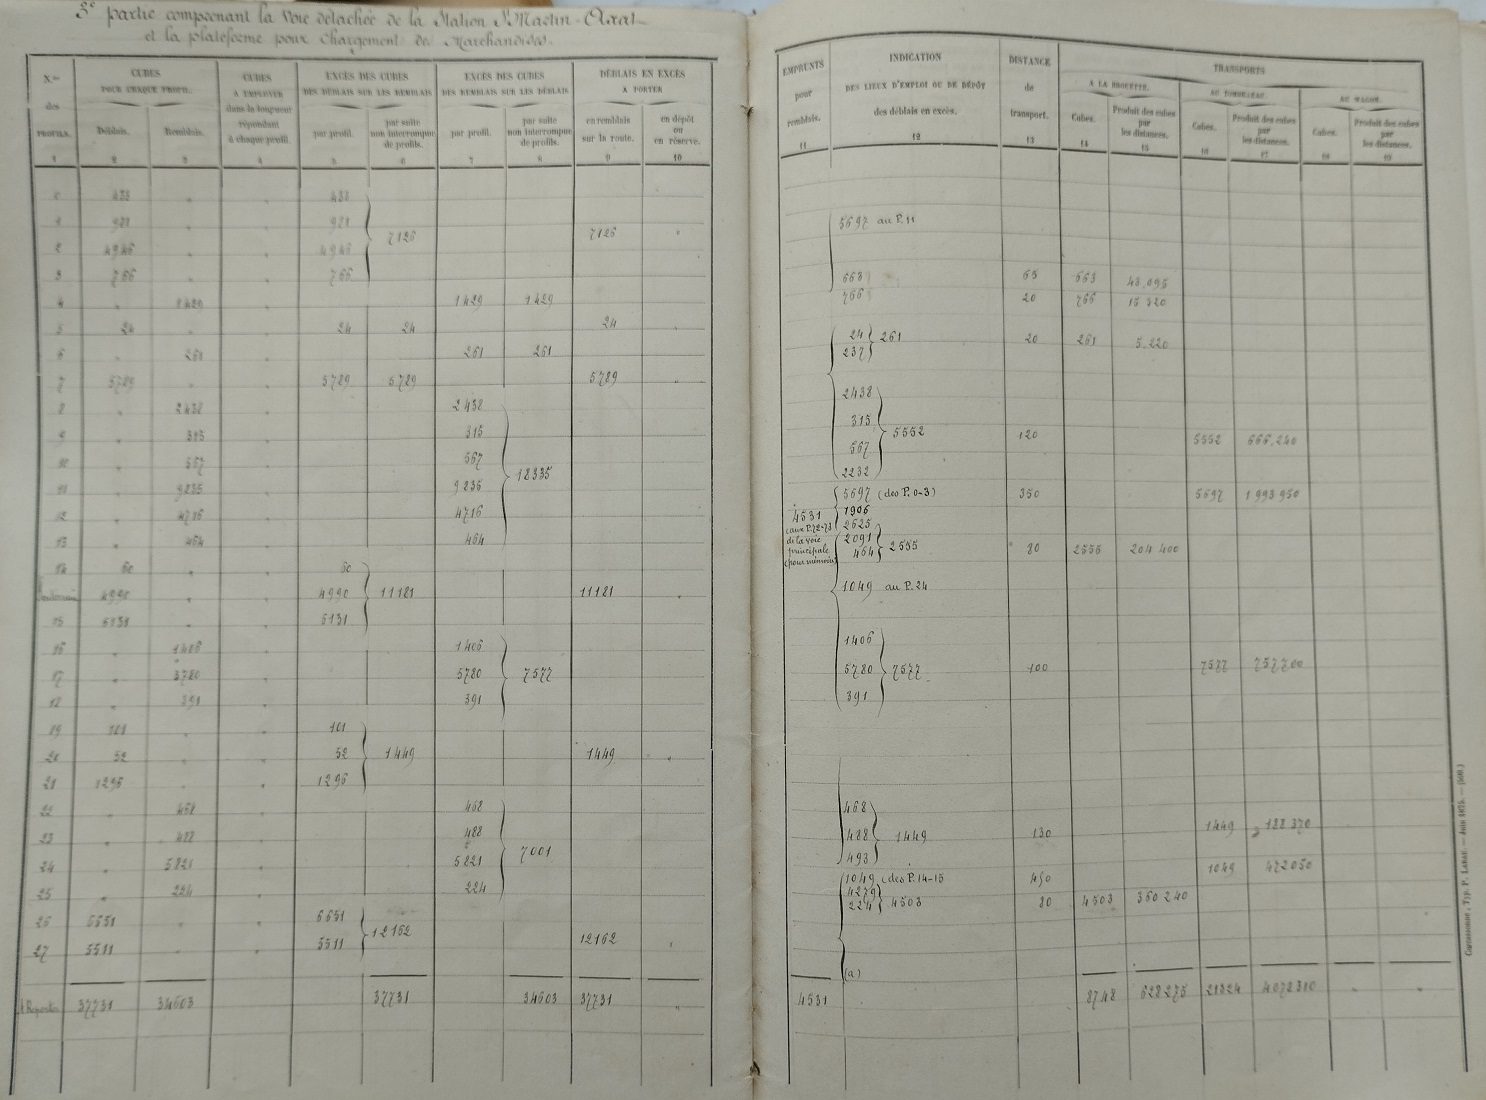 3e partie comprenant la Voie détachée de la Station St Martin-Axat
et la plateforme pour chargement de Marchandises.
N.os des PROFILS. 1
CUBES POUR CHAQUE PROFIL.
Déblais. 2
Remblais. 3
CUBES A EMPLOYER dans la longueur répondant à chaque profil. 4
EXCÈS DES CUBES DES DÉBLAIS SUR LES REMBLAIS
par profil. 5
par suite non interrompue de profils. 6
EXCÈS DES CUBES DES REMBLAIS SUR LES DÉBLAIS
par profil. 7
par suite non interrompue de profils. 8
DÉBLAIS EN EXCÈS A PORTER
en remblais sur la route. 9
en dépôt ou en réserve. 10
0 433 433
1 921 921 7126 7126
2 4946 4946
3 766 766
4 1429 1429 1429
5 24 24 24 24
6 261 261 261
7 5789 5789 5789 5789
8 2438 2438
9 315 315
10 567 567
11 9835 9835 18335
12 4716 4716
13 464 464
14 60 60
4990 4990 11181 11181
15 6131 6131
16 1406 1406
17 5780 5780 7577
18 391 391
19 101 101
20 52 52 1449 1449
21 1296 1296
22 468 468
23 488 488 7001
24 5821 5821
25 224 224
26 6651 6651 12162 12162
27 5511 5511
A Reporter 37731 34603 37731 34603 37731
EMPRUNTS pour remblais. 11
INDICATION DES LIEUX D'EMPLOI OU DE DÉPÔT des déblais en excès. 12
DISTANCE de transport. 13
TRANSPORTS
A LA BROUETTE.
Cubes. 14
Produit des cubes par les distances. 15
AU TOMBEREAU.
Cubes. 16
Produit des cubes par les distances. 17
AU WAGON.
Cubes. 18
Produit des cubes par les distances. 19
5697 au P. 11
663 65 663 43,095
766 20 766 15 320
24
237 261 20 261 5.220
2438
315
567 5552 120 5552 666,240
2232
5697 (des P. 0-3) 350 5697 1 993 950
4531 1906
(aux P. 72-73 2625
de la voie 2091
principale 464 2555 80 2555 204 400
(pour mémoire)
1049 au P. 24
1406
5780 7577 100 7577 757700
391
468
488 1449 130 1449 188 370
493
1049 (des P. 14-15 450 1049 472050
4279
224 4503 80 4503 360 240
(a)
4531 8748 628 275 21324 4078310
Carcassonne, Typ. P. LABAU. — Juin 1875. — (500.)